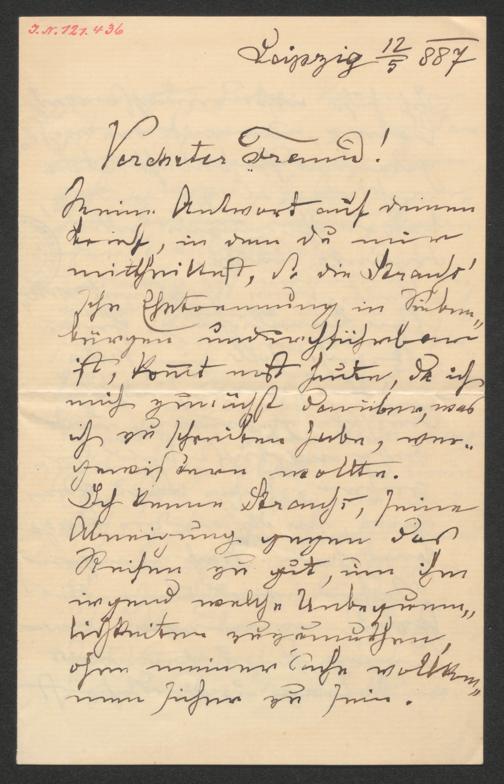 J.N. 121.436
Leipzig 12/5 887
Verehrter Freund!
Meine Antwort auf deinen
Brief, in dem du mir
mittheiltest, d. die Strauß'
sche Ehetrennung in Sieben„
bürgen undurchführbar
ist, kom̅t erst heute, da ich
mich zunächst darüber, was
ich zu schreiben habe, ver„
gewissern wollte.
Ich kenne Strauß, seine
Abneigung gegen das
Reisen zu gut, um ihm
irgend welche Unbequem„
lichkeiten zuzumuthen,
ohne meiner Sache vollkom„
men sicher zu sein.